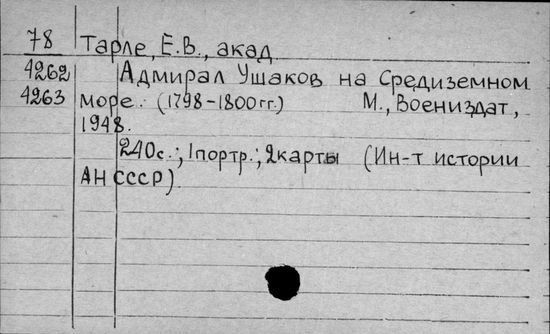 78 Тарле, Е.В., акад
4262 Адмирал Ушаков на Средиземном
4263 море. (1798-1800гг.) М., Воениздат,
1948.
240с.; 1портр.; 2карты (Ин-т истории
АН СССР)